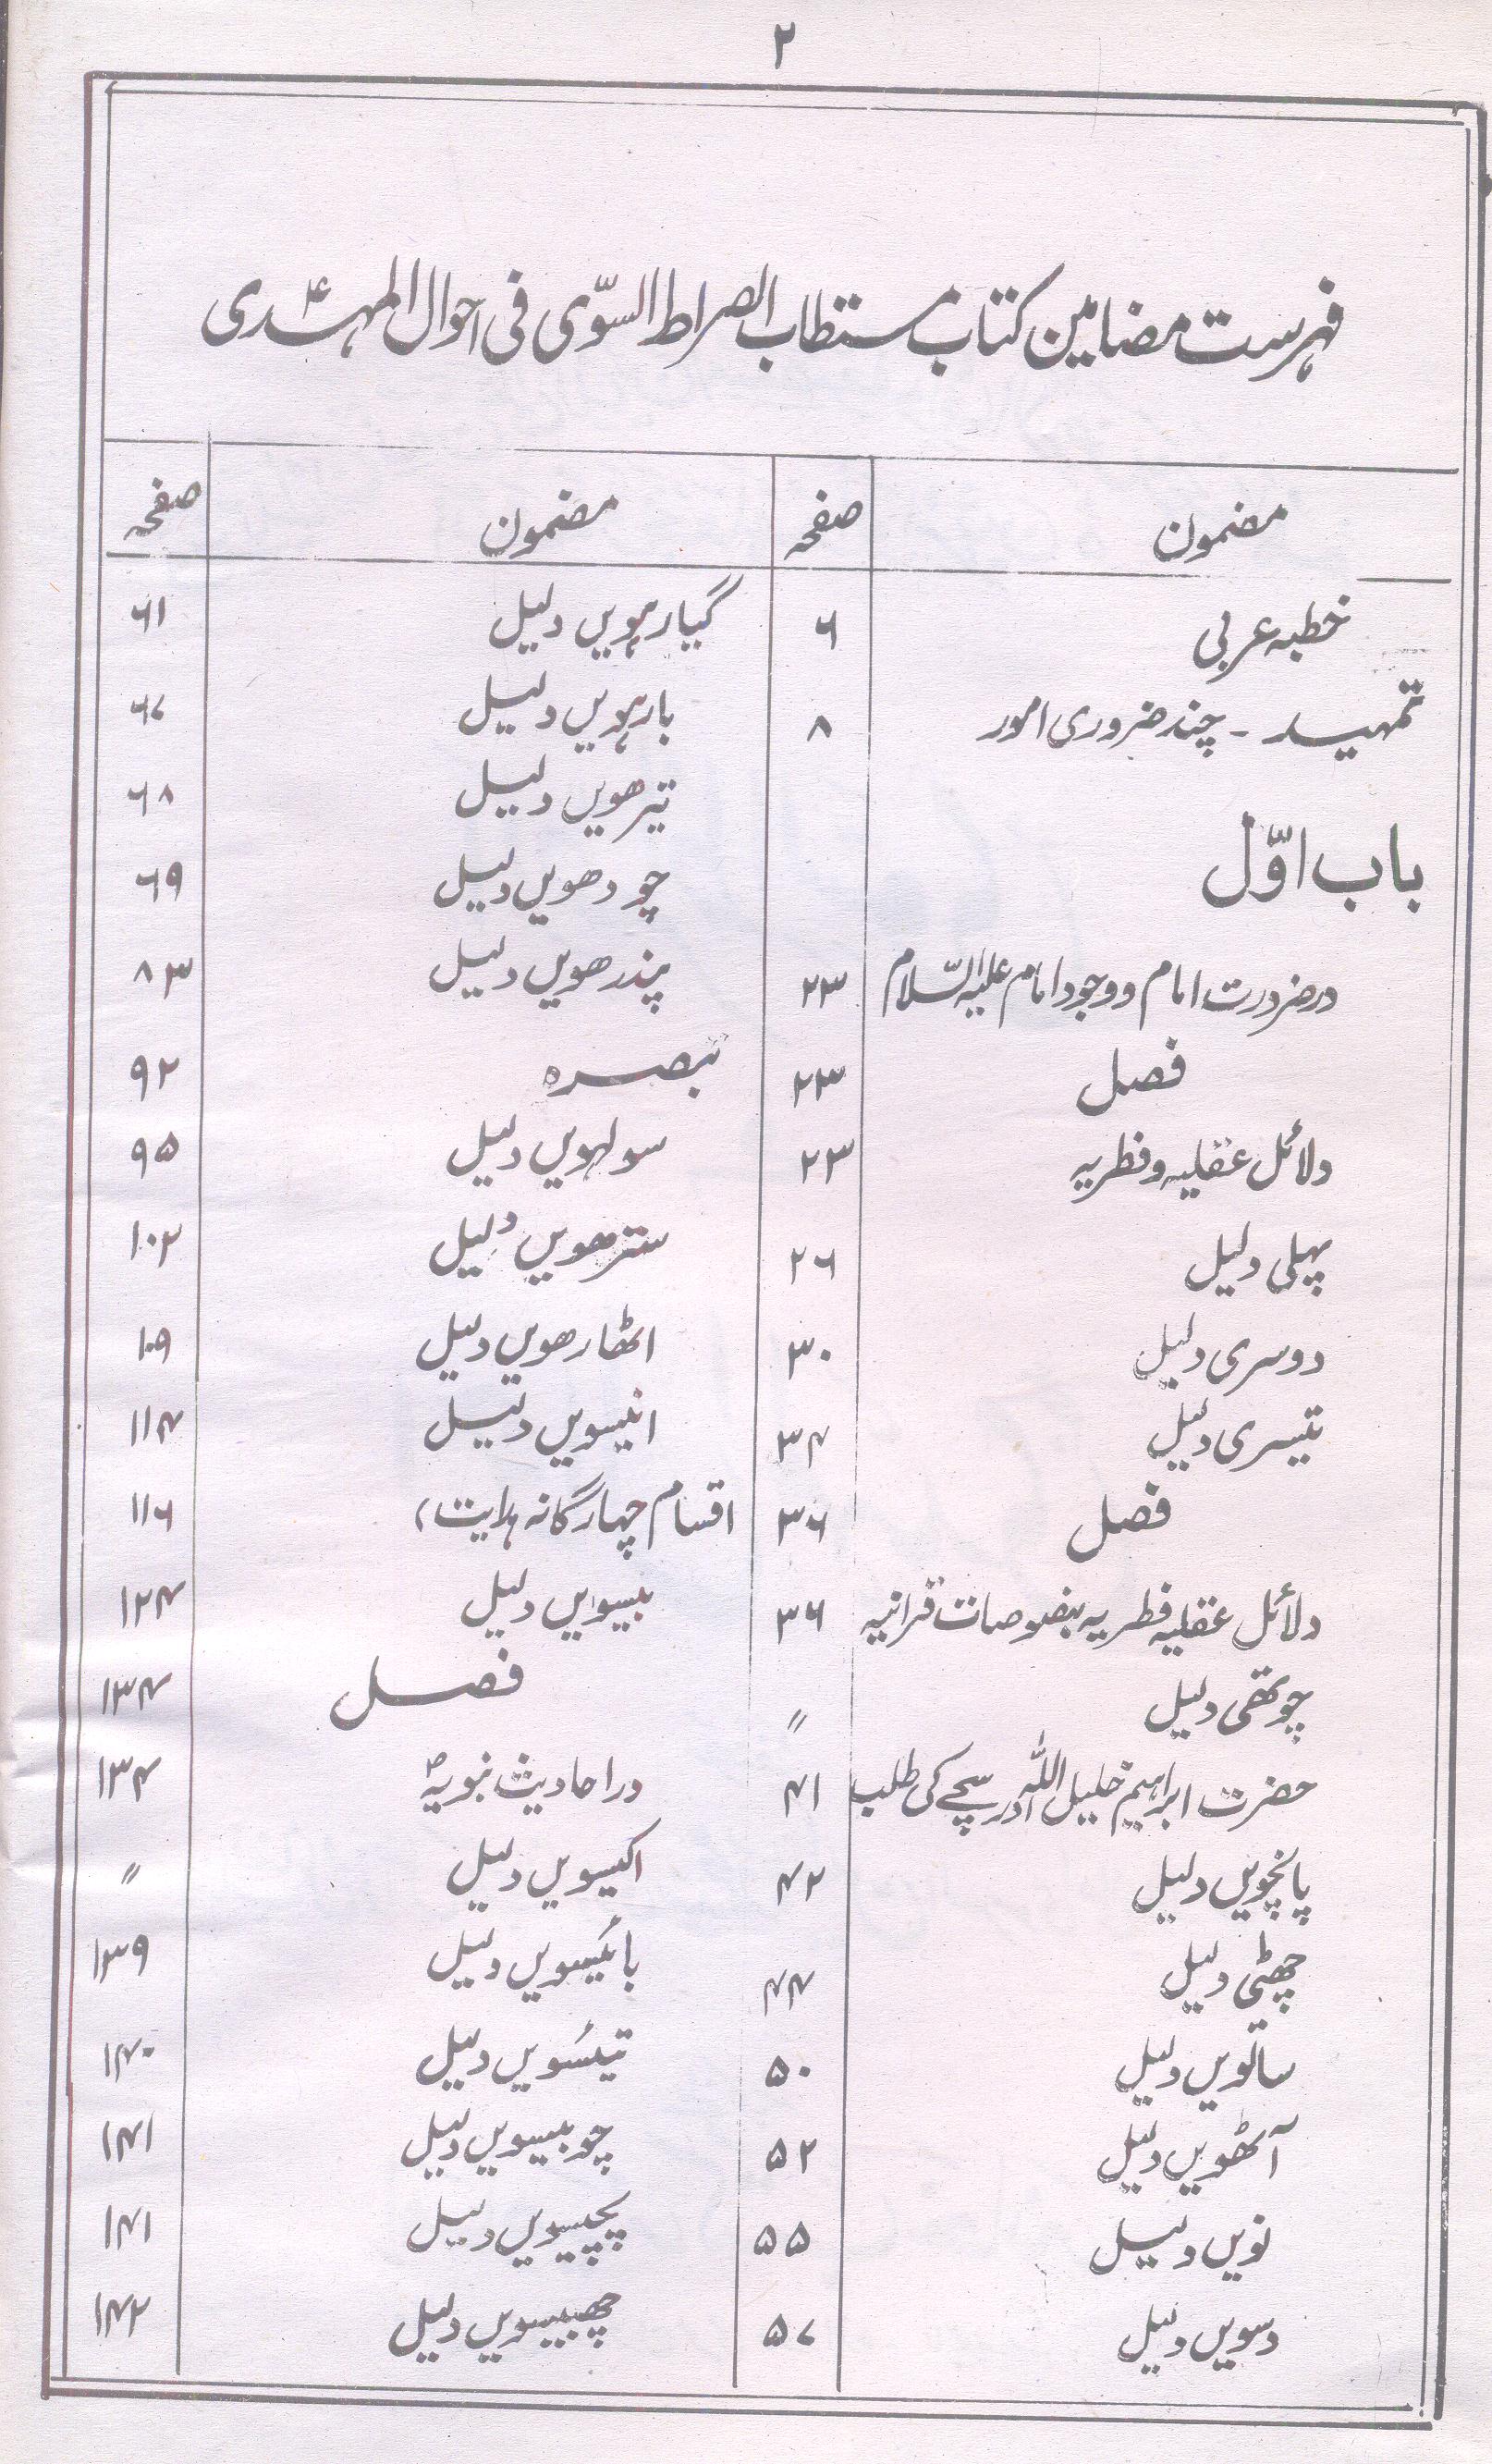 ۲
فہرست مضامین کتاب مستطاب الصراط السوّی فی احوال المہدیؑ
مضمون صفحہ
خطبہ عربی ۶
تمہید - چند ضروری امور ۸
باب اوّل
در ضرورت امام و وجود امام علیہ السّلام ۲۳
فصل ۲۳
دلائل عقلیہ و فطریہ ۲۳
پہلی دلیل ۲۶
دوسری دلیل ۳۰
تیسری دلیل ۳۴
فصل ۳۶
دلائل عقلیہ فطریہ بنصوصات قرانیہ ۳۶
چوتھی دلیل 〃
حضرت ابراہیم خلیل اللہ اور سچے کی طلب ۴۱
پانچویں دلیل ۴۲
چھٹی دلیل ۴۴
ساتویں دلیل ۵۰
آٹھویں دلیل ۵۲
نویں دلیل ۵۵
دسویں دلیل ۵۷
مضمون صفحہ
گیارہویں دلیل ۶۱
بارہویں دلیل ۶۷
تیرھویں دلیل ۶۸
چودھویں دلیل ۶۹
پندرھویں دلیل ۸۳
تبصرہ ۹۲
سولہویں دلیل ۹۵
سترھویں دلیل ۱۰۲
اٹھارھویں دلیل ۱۰۹
انیسویں دلیل ۱۱۴
اقسام چہارگانہ ہدایت، ۱۱۶
بیسویں دلیل ۱۲۴
فصل ۱۳۴
در احادیث نبویہؐ ۱۳۴
اکیسویں دلیل 〃
بائیسویں دلیل ۱۳۹
تیئسویں دلیل ۱۴۰
چوبیسویں دلیل ۱۴۱
پچیسویں دلیل ۱۴۱
چھبیسویں دلیل ۱۴۲